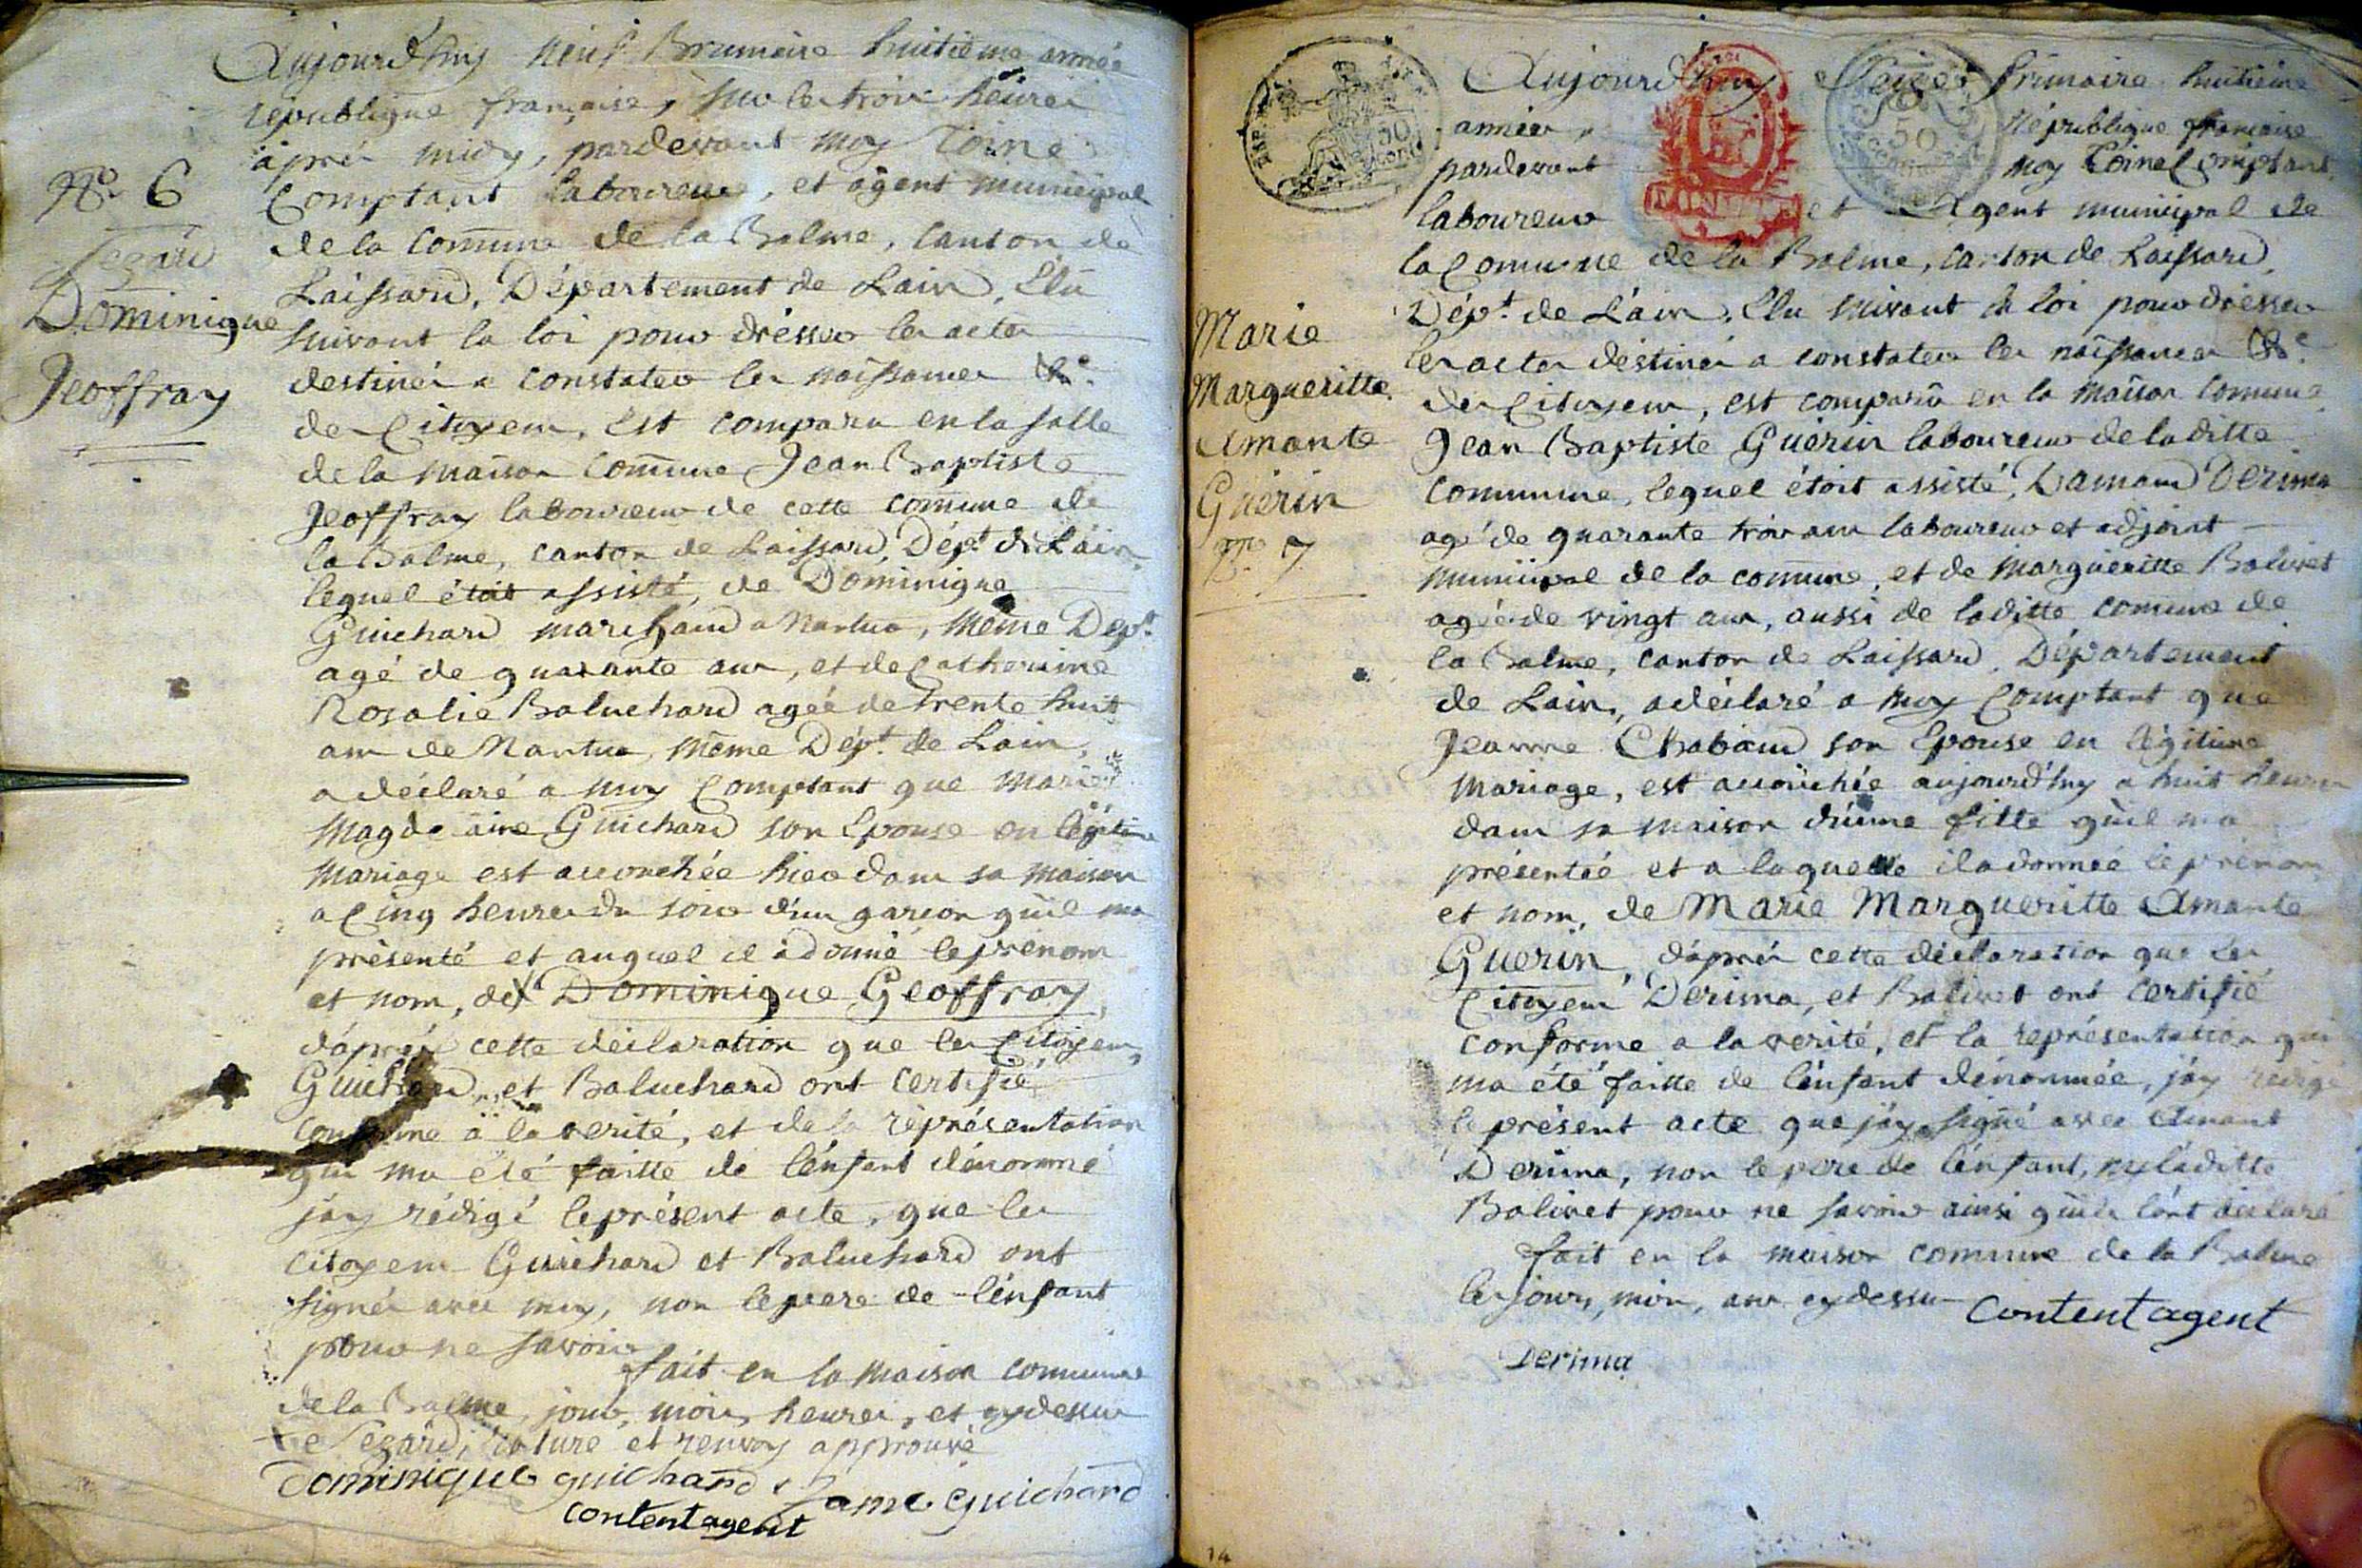 Aujourd'huy neuf Brumaire huitieme année
république française, sur les trois heures
après midy, pardevant moy Toine
Comptant laboureur, et agent municipal
de la Commune de la Balme, canton de
Laissard, Département de Lain, Elu
suivant la loi pour drésser les actes
destinés a constater les naissances &c.
des Citoyens, est comparu en la salle
de la maison Commune Jean Baptiste
Jeoffray laboureur de cette commune de
la Balme, canton de Laissard, Dépt. de Lain,
lequel étoit assisté, de Dominique
Guichard marchand a Nantua, même Dépt.
agé de quarante ans, et de Catherinne
Rosalie Baluchard agée de trente huit
ans de Nantua, même Dépt. de Lain,
a déclaré a moy Comptant que Marie
Magdelaine Guichard son Epouse en légitime
Mariage est accouchée hier dans sa maison
a Cinq heures du soir d'un garçon qu'il ma
présenté et auquel il a donné le prénom
et nom, de Dominique Geoffray,
d'après cette déclaration que les Citoyens,
Guichard, et Baluchard ont certifié
conforme à la verité, et de la réprésentation
qui ma été faitte de l'énfant dénommé
j'ay rédigé le présent acte, que les
Citoyens Guichard et Baluchard ont
signés avec moy, non le pere de l'énfant
pour ne savoir
fait en la maison commune
de la Balme, jour, mois, heures, et cydessus
Le Sezard, rature et renvoy approuvé
Dominique guichard
ame guichard
Content agent
No. 6
Sezard
Dominique
Jeoffray
Aujourd'huy Seize frimaire huitieme
année
République française
pardevant
moy Toine Comptant
laboureur
et Agent municipal de
la Comune de la Balme, canton de Laissard,
Dépt. de Láin, Elu suivant la loi pour drésser
les actes déstinés a constater les naissances &c.
des Citoyens, est comparû en la maison Comune
Jean Baptiste Guérin laboureur de la ditte
Commune, lequel étoit assisté, Damand Derima
agé de quarante trois ans laboureur et adjoint
municipal de la commune, et de Margueritte Balivet
agée de vingt ans, aussi de laditte comune de
la Balme, canton de Laissard, Département
de Lain, a déclaré a moy Comptant que
Jeanne Chabaud son Epouse en légitime
Mariage, est accouchée aujourd'huy a huit heures
dans sa maison d'unne fille qu'il ma
présentée et a laquelle il a donnée le prénom
et nom, de Marie Margueritte Amante
Guerin, d'après cette déclaration que les
Citoyens Dérima, et Balivet ont certifié
conforme a la verité, et la représentation qui
ma été faitte de l'énfant dénommée, j'ay rédigé
le présent acte que j'ay signé avec Amant
Derima, non le pere de l'énfant, ny laditte
Balivet pour ne savoir ainsi qu'ils l'ont déclaré
fait en la maison comune de la Balme
les jours, mois, ans cydessus
Content agent
Derima
Marie
Margueritte
Amante
Guérin
No. 7
50
50
14